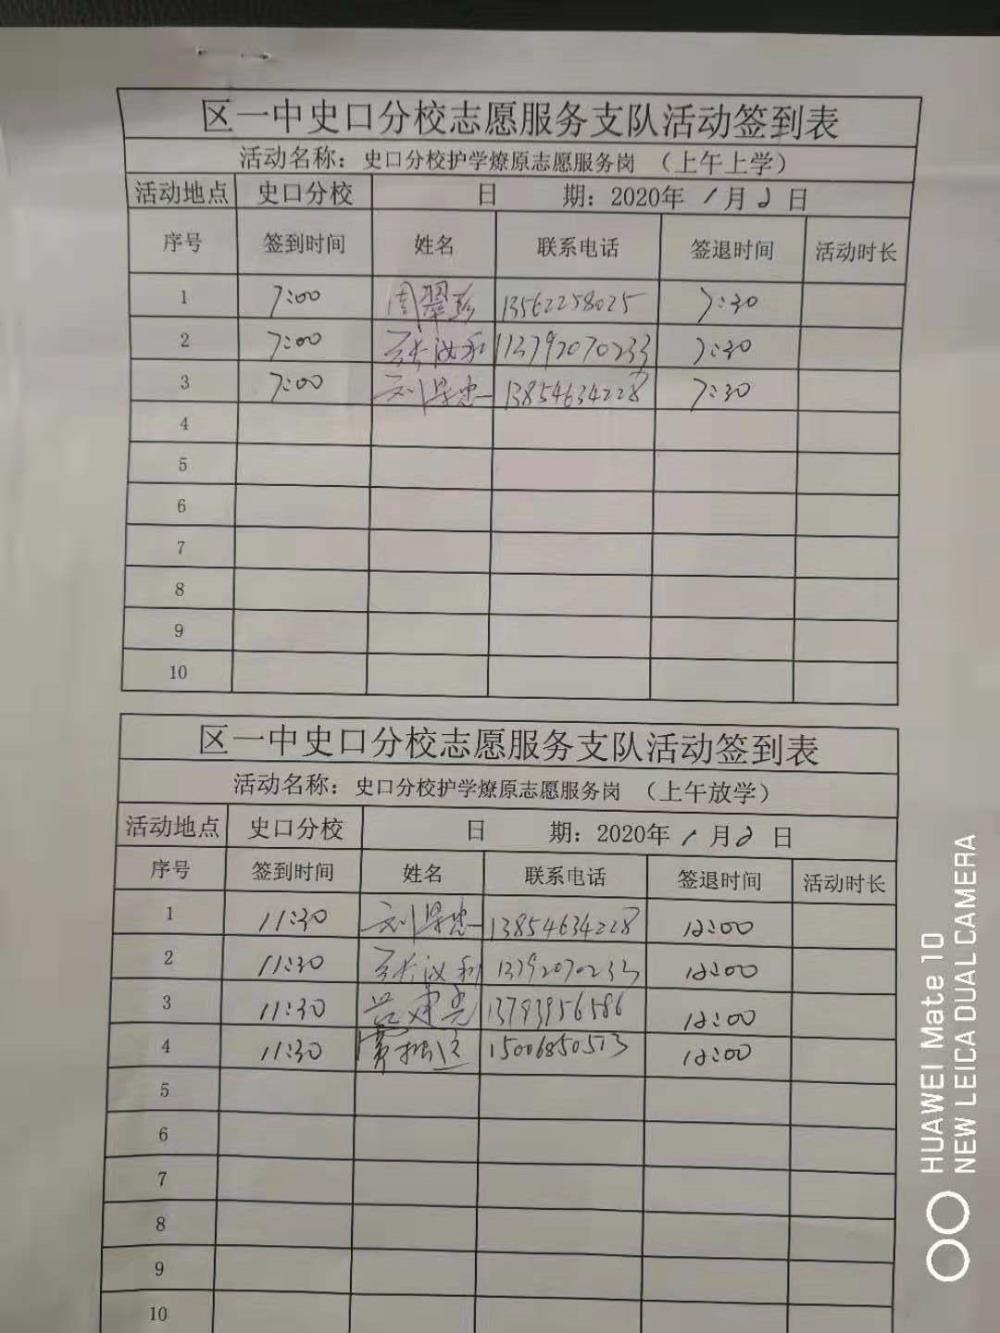 区一中史口分校志愿服务支队活动签到表
活动名称：史口分校护学燎原志愿服务岗 （上午上学）
活动地点 史口分校 日 期：2020年 1月 2日
序号 签到时间 姓名 联系电话 签退时间 活动时长
1 7:00 周翠彭 13562258025 7:30
2 7:00 张汝利 13792070233 7:30
3 7:00 刘 忠 13854634228 7:30
4
5
6
7
8
9
10
区一中史口分校志愿服务支队活动签到表
活动名称：史口分校护学燎原志愿服务岗 （上午放学）
活动地点 史口分校 日 期：2020年 1月 2日
序号 签到时间 姓名 联系电话 签退时间 活动时长
1 11:30 刘 忠 13854634228 12:00
2 11:30 张汝利 13792070233 12:00
3 11:30 吕建亮 13793956586 12:00
4 11:30 贾 15006850513 12:00
5
6
7
8
9
10
HUAWEI Mate 10
NEW LEICA DUAL CAMERA